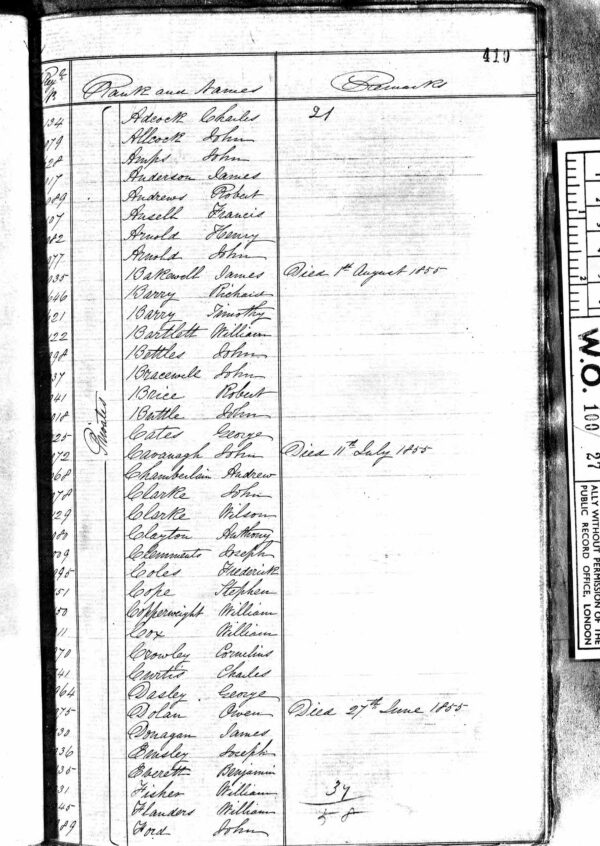 419
Reg &
No Rank and Names Remarks
Privates
134 Adcock Charles 21
079 Allcock John
428 Amps John
117 Anderson James
089 Andrews Robert
107 Ansell Francis
082 Arnold Henry
077 Arnold John
035 Bakewell James Died 1st August 1855
646 Barry Richard
621 Barry Timothy
222 Bartlett William
098 Bettles John
037 Bracewell John
041 Brice Robert
018 Buttle John
025 Cates George
072 Cavanagh John Died 11th July 1855
068 Chamberlain Andrew
078 Clarke John
029 Clarke Wilson
080 Clayton Anthony
009 Clemments Joseph
095 Coles Frederick
051 Cope Stephen
050 Copperweight William
011 Cox William
070 Crowley Cornelius
041 Curtis Charles
064 Dasley George
075 Dolan Owen Died 27th June 1855
030 Donagan James
036 Emsley Joseph
035 Everett Benjamin
31 Fisher William 37
45 Flanders William
089 Ford John
W.O. 100/27
ALLY WITHOUT PERMISSION OF THE
PUBLIC RECORD OFFICE, LONDON